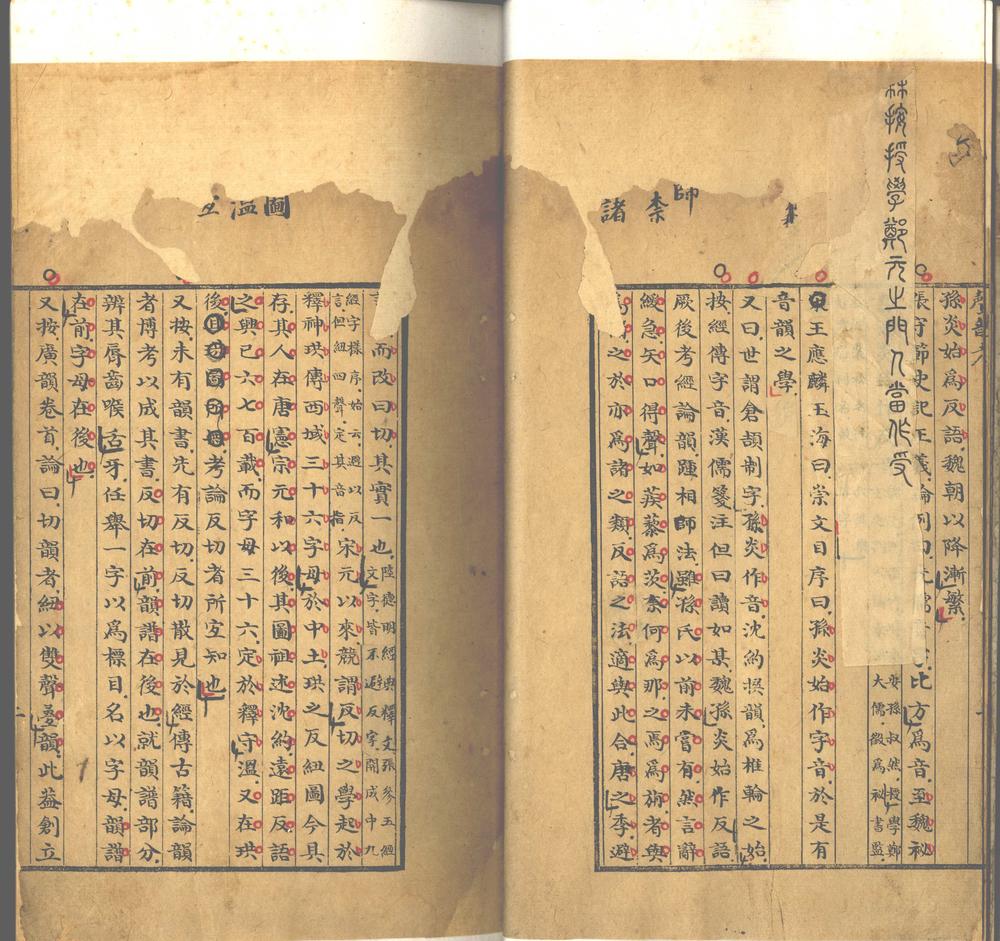 林按授學鄭元之門人當作受
師
柰
諸
聲韻考
孫炎始爲反語魏朝以降漸繁
張守節史記正義論例曰先儒比方爲音至魏祕
孫叔然授學鄭
大儒徵爲祕書監
王應麟玉海曰崇文目序曰孫炎始作字音於是有
音韻之學
又曰世謂倉頡制字孫炎作音沈約撰韻爲椎輪之始
按經傳字音漢儒箋注但曰讀如某魏孫炎始作反語
厥後考經論韻踵相師法雖孫氏以前未嘗有然言辭
緩急矢口得聲如蒺藜爲茨柰何爲那之焉爲旃者與
之於亦爲諸之類反語之法適與此合唐之季避
圖
溫
而改曰切其實一也陸德明經典釋文張參五經
文字皆不避反字開成中九
經字樣序始云避以反
言但紐四聲定其音指宋元以來競謂反切之學起於
釋神珙傳西域三十六字母於中土珙之反紐圖今具
存其人在唐憲宗元和以後其圖祖述沈約遠距反語
之興已六七百載而字母三十六定於釋守溫又在珙
後考論反切者所宜知也
又按未有韻書先有反切反切散見於經傳古籍論韻
者博考以成其書反切在前韻譜在後也就韻譜部分
辨其脣齒喉舌牙任舉一字以爲標目名以字母韻譜
在前字母在後也
又按廣韻卷首論曰切韻者紐以雙聲疊韻此蓋創立